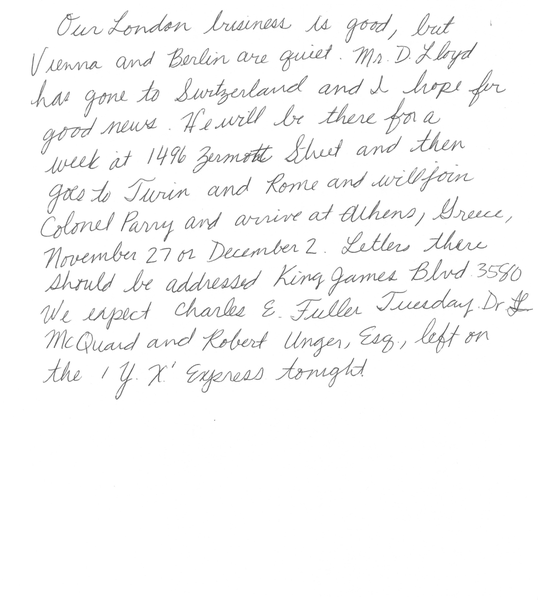 Our London business is good, but
Vienna and Berlin are quiet. Mr. D. Lloyd
has gone to Switzerland and I hope for
good news. He will be there for a
week at 1496 Zermott Street and then
goes to Turin and Rome and will join
Colonel Parry and arrive at Athens, Greece,
November 27 or December 2. Letters there
should be addressed King James Blvd. 3580
We expect Charles E. Fuller Tuesday. Dr. L
McQuaid and Robert Unger, Esq., left on
the 'Y. X.' Express tonight.